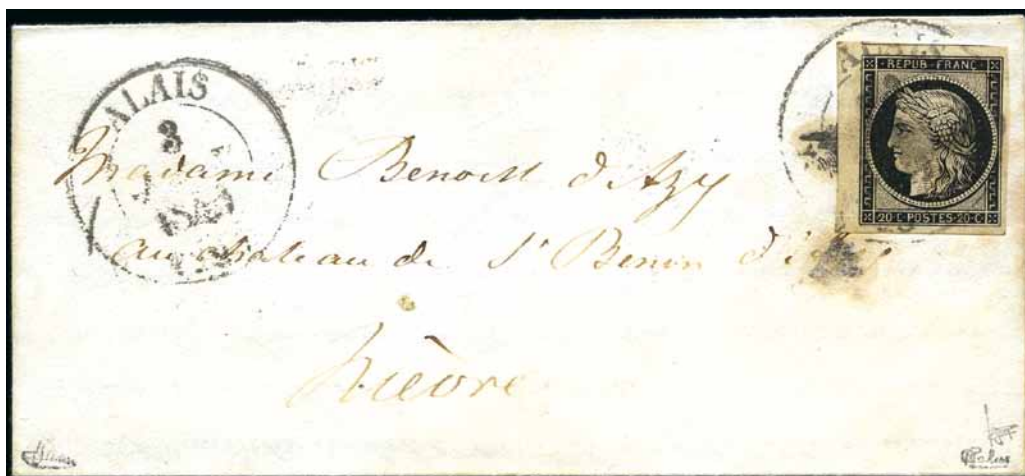 ALAIS
3
REPUB. FRANC.
20·C·POSTES·20·C
Madame Benoist d'Azy
au château de St Benin d'Azy
Nièvre